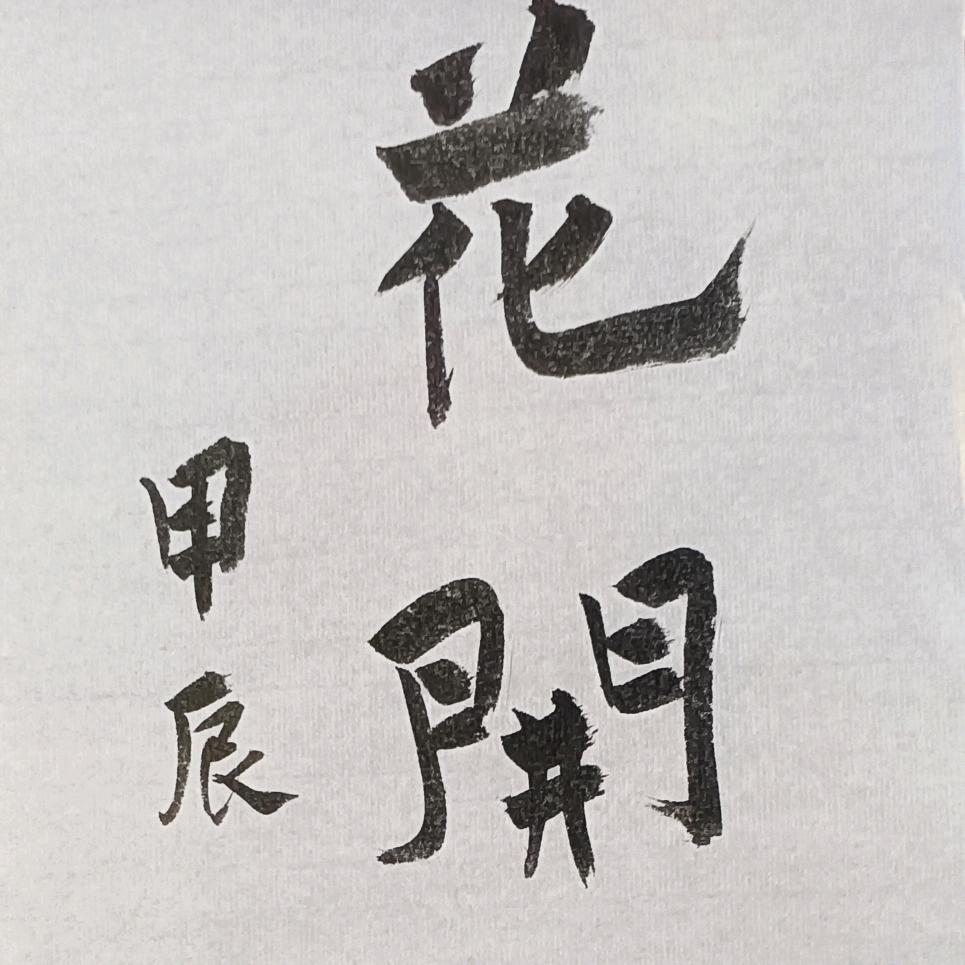 花開
甲辰